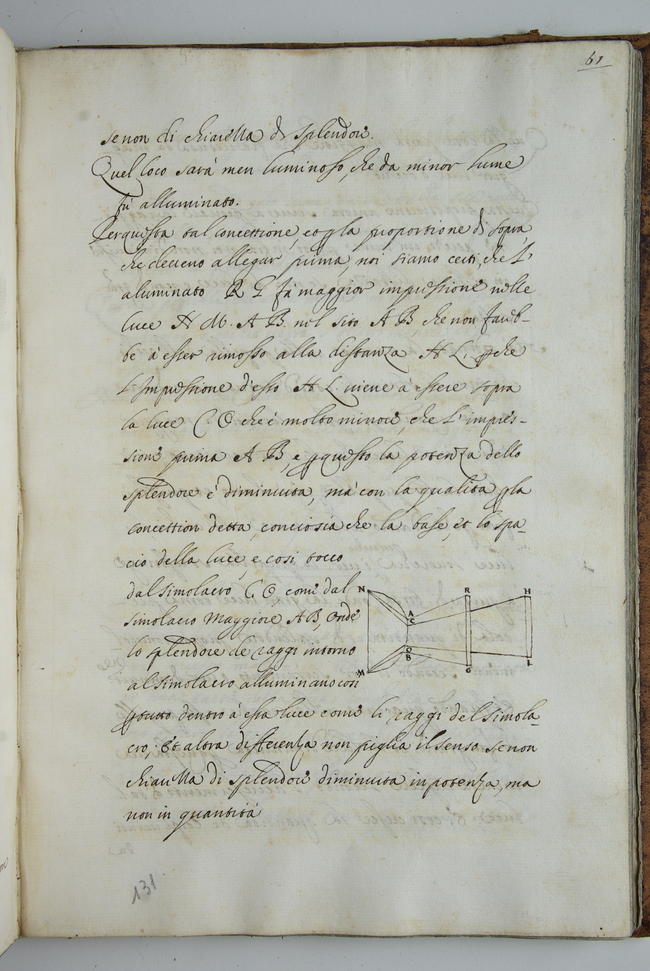 61
se non di chiarezza di splendore.
Quel loco sarà men luminoso, che da minor lume
fu alluminato.
Per questa tal concettione, et p la proportione di sopra
che devemo allegar prima, noi siamo certi, che l'
aluminato R G fa maggior impressione nella
luce N M. A B nel sito A B che non fareb-
be à esser rimosso alla distanza H L, pche
l'impressione d'esso H L viene à essere sopra
la luce C O che è molto minore che l'impres-
sione prima A B, e p questo la potenza dello
splendore è diminuita, mà con la qualità p la
concettion detta, conciosia che la base, et lo spa-
cio della luce, e cosi tocco
dal simolacro C O come dal
simolacro maggiore A B, onde
lo splendore de raggi intorno
al simolacro alluminano così
p tutto dentro à essa luce come li raggi del simola-
cro, et altra differenza non piglia il senso se non
chiarezza di splendore diminuita in potenza, ma
non in quantità
N A C R H
M O B G L
131